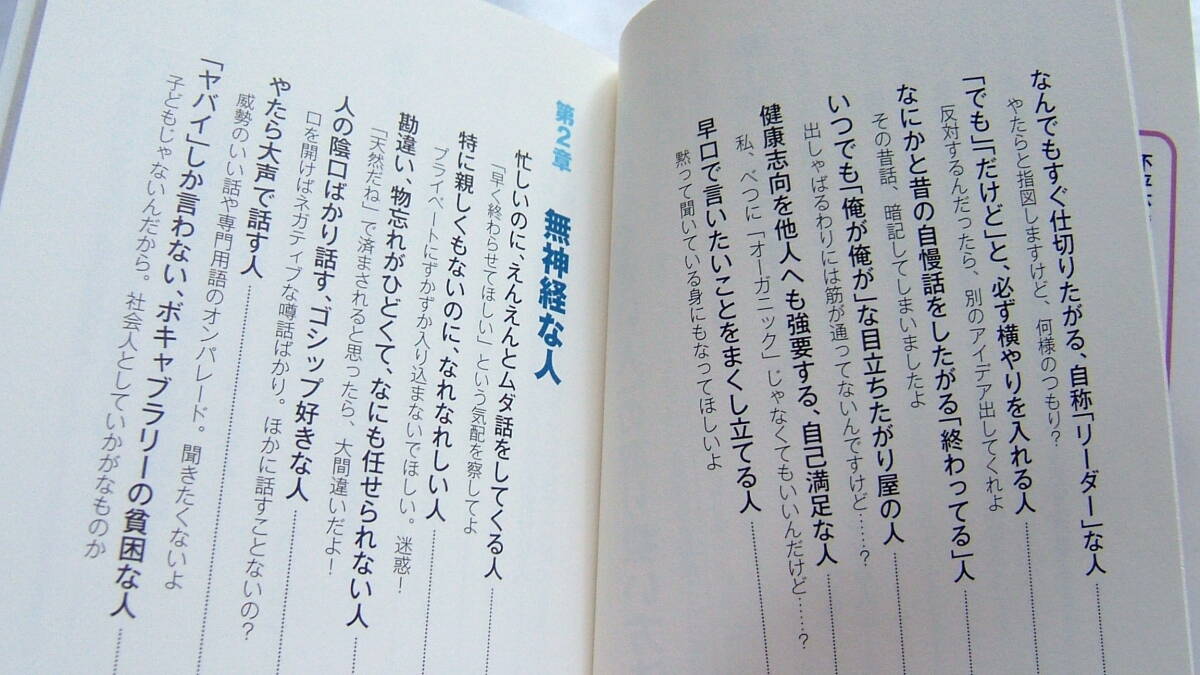 なんでもすぐ仕切りたがる、自称「リーダー」な人
やたらと指図しますけど、何様のつもり？
「でも」「だけど」と、必ず横やりを入れる人
反対するんだったら、別のアイデア出してくれよ
なにかと昔の自慢話をしたがる「終わってる」人
その昔話、暗記してしまいましたよ
いつでも「俺が俺が」な目立ちたがり屋の人
出しゃばるわりには筋が通ってないんですけど……？
健康志向を他人へも強要する、自己満足な人
私、べつに「オーガニック」じゃなくてもいいんだけど……？
早口で言いたいことをまくし立てる人
黙って聞いている身にもなってほしいよ
第2章 無神経な人
忙しいのに、えんえんとムダ話をしてくる人
「早く終わらせてほしい」という気配を察してよ
特に親しくもないのに、なれなれしい人
プライベートにずかずか入り込まないでほしい。迷惑！
勘違い、物忘れがひどくて、なにも任せられない人
「天然だね」で済まされると思ったら、大間違いだよ！
人の陰口ばかり話す、ゴシップ好きな人
口を開けばネガティブな噂話ばかり。ほかに話すことないの？
やたら大声で話す人
威勢のいい話や専門用語のオンパレード。聞きたくないよ
「ヤバイ」しか言わない、ボキャブラリーの貧困な人
子どもじゃないんだから。社会人としていかがなものか